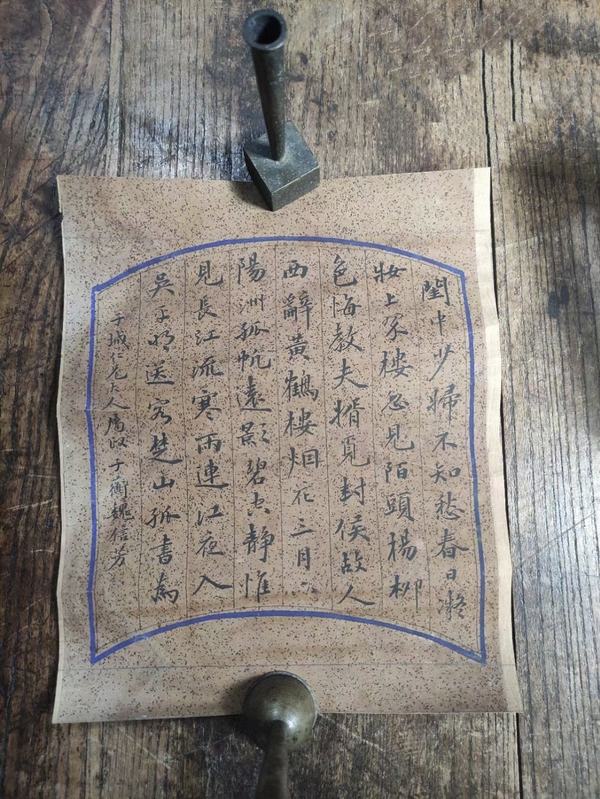 閨中少婦不知愁春日凝
妝上翠樓忽見陌頭楊柳
色悔教夫壻覓封侯故人
西辭黃鶴樓烟花三月下
陽洲孤帆遠影碧空静惟
見長江流寒雨連江夜入
吳平明送客楚山孤書為
子城仁兄大人属 子蘅魏信芳